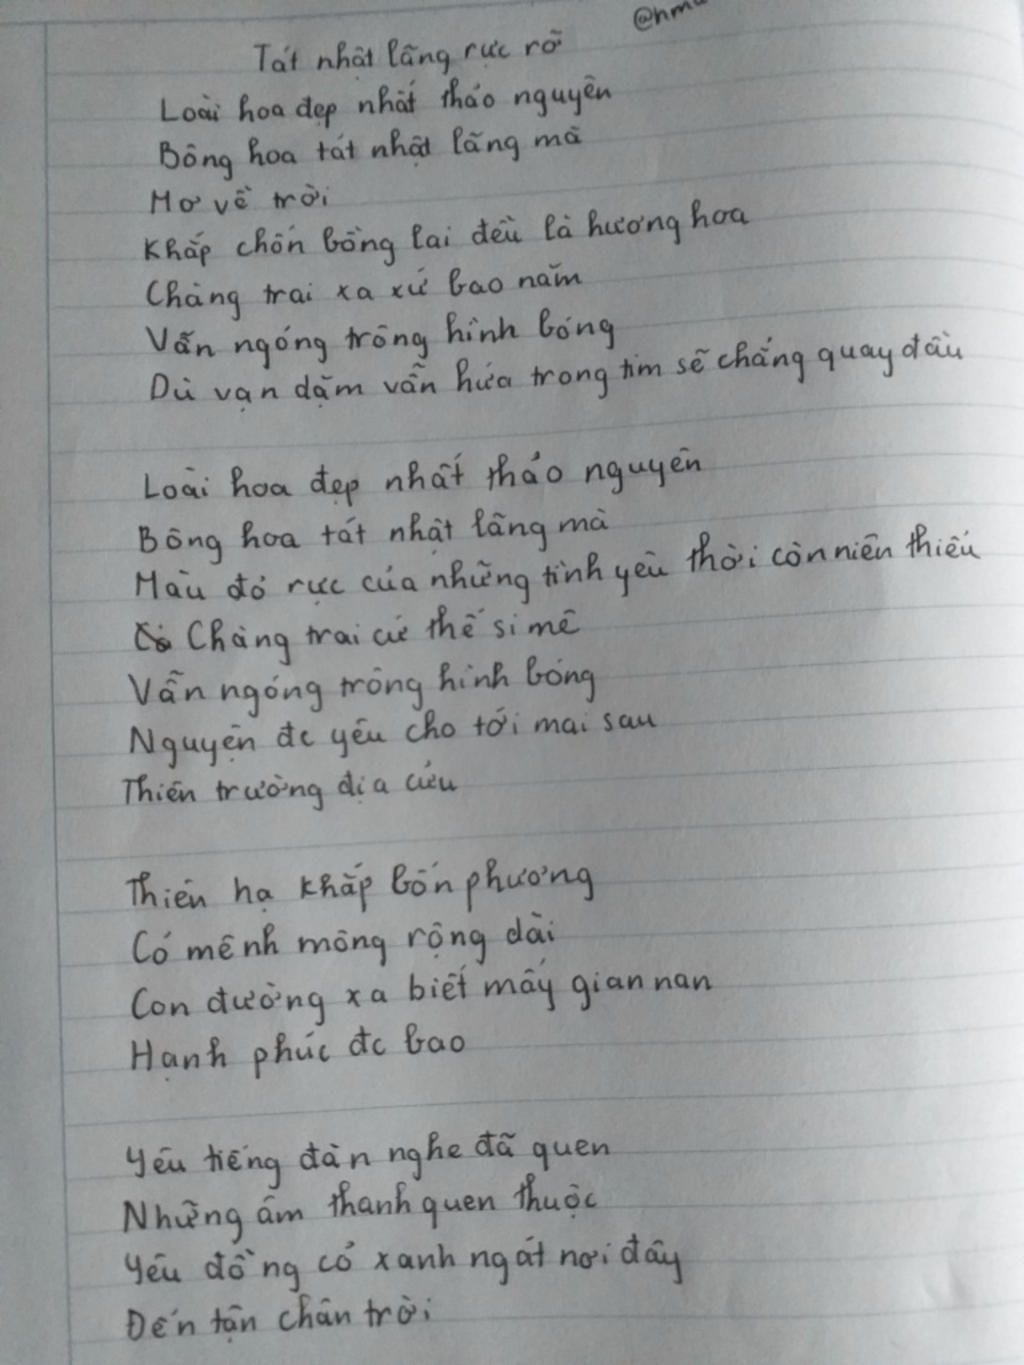 @hm
Tát nhật lãng rực rỡ
Loài hoa đẹp nhất thảo nguyên
Bông hoa tát nhật lãng mà
Mơ về trời
Khắp chốn bồng lai đều là hương hoa
Chàng trai xa xứ bao năm
Vẫn ngóng trông hình bóng
Dù vạn dặm vẫn hứa trong tim sẽ chẳng quay đầu
Loài hoa đẹp nhất thảo nguyên
Bông hoa tát nhật lãng mà
Màu đỏ rực của những tình yêu thời còn niên thiếu
Chàng trai cứ thế si mê
Vẫn ngóng trông hình bóng
Nguyện đc yêu cho tới mai sau
Thiên trường địa cửu
Thiên hạ khắp bốn phương
Có mênh mông rộng dài
Con đường xa biết mấy gian nan
Hạnh phúc đc bao
Yêu tiếng đàn nghe đã quen
Những âm thanh quen thuộc
Yêu đồng cỏ xanh ngát nơi đây
Đến tận chân trời